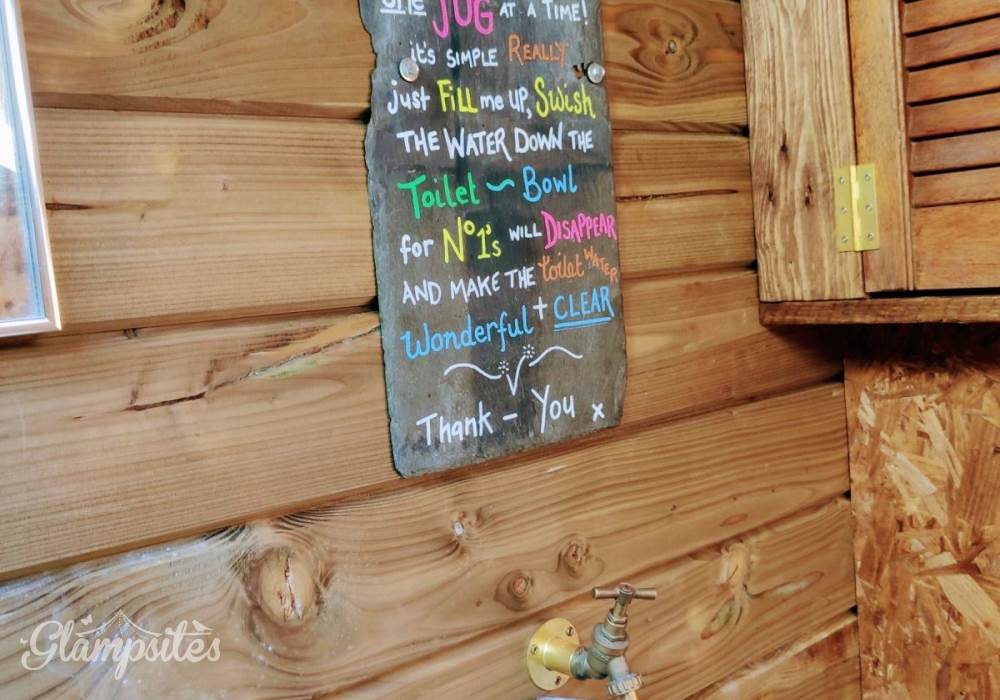 one JUG AT A TIME!
it's SIMPLE REALLY
just FILL me UP, Swish
THE WATER DOWN THE
Toilet ~ Bowl
for Nº1's WILL DISAPPEAR
AND MAKE THE toilet WATER
Wonderful + CLEAR
Thank - You x
Glampsites